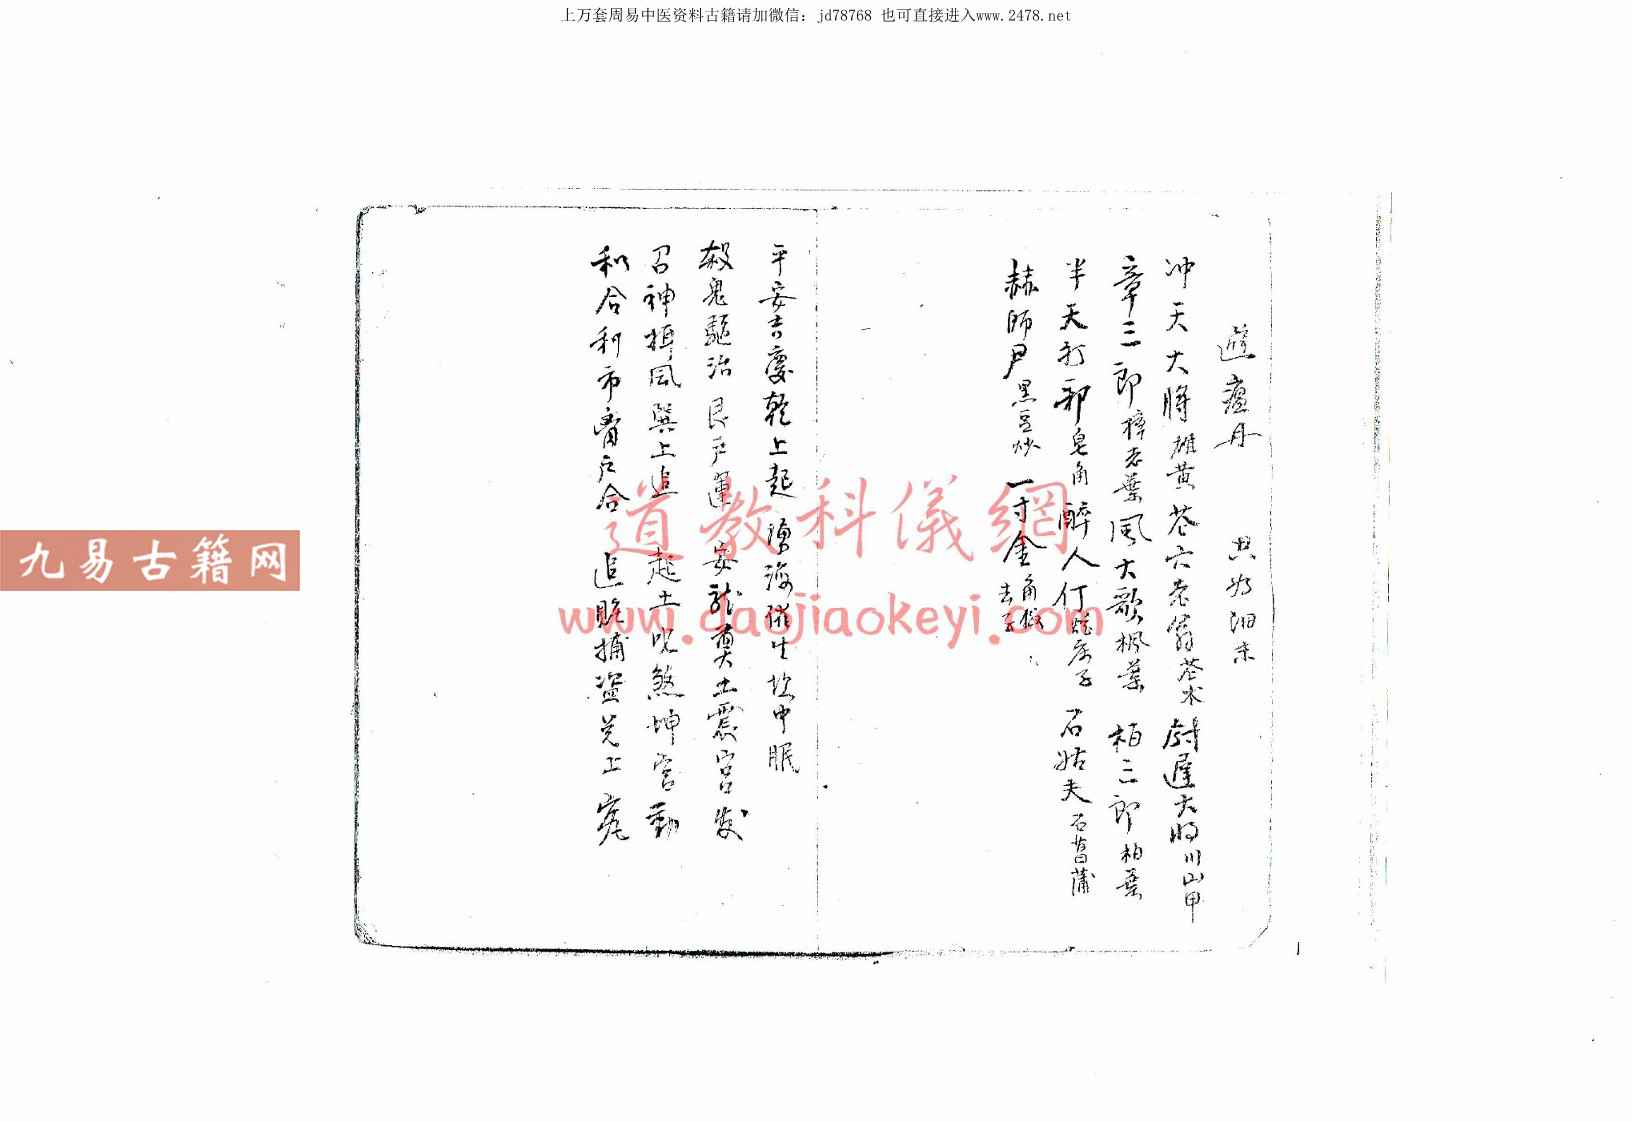 上万套周易中医资料古籍请加微信：jd78768 也可直接进入www.2478.net
避瘟丹 共为细末
冲天大将雄黄苍六老翁苍术尉遲大将川山甲
章三郎樟老葉風大歌楓葉 柏三郎柏葉
半天打邪皂角醉人仃 石姑夫石菖蒲
赫師尹黑豆炒一寸金
平安吉慶乾上起 催生坎中眠
殺鬼驅治艮户運 安龍奠土震宮发
召神揖風巽上追 起土収煞坤宮動
和合利市离户合 追賍捕盗兑上寃
道教科儀網
www.daojiaokeyi.com
九易古籍网